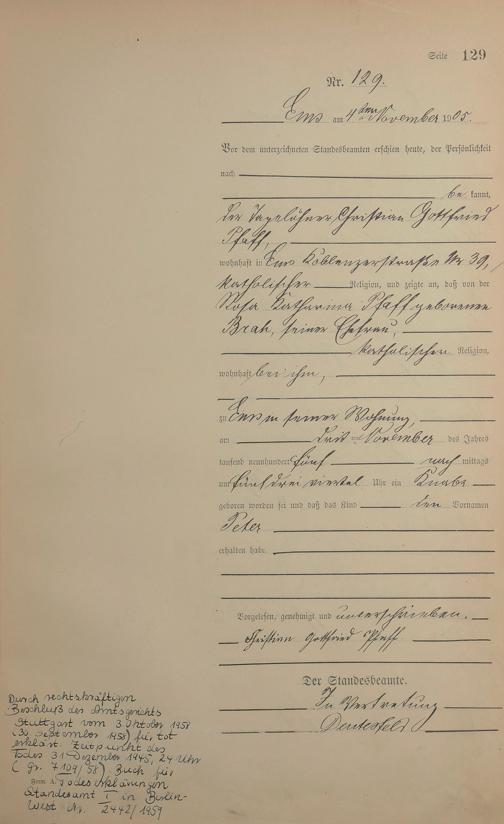 Seite 129
Nr. 129.
Ems am 4ten November 1905.
Vor dem unterzeichneten Standesbeamten erschien heute, der Persönlichkeit
nach
be kannt,
der Tagelöhner Christian Gottfried
Pfaff,
wohnhaft in Ems Koblenzerstraße Nr 39,
katholischer Religion, und zeigte an, daß von der
Rosa Katharina Pfaff geborenen
seiner Ehefrau,
katholischen Religion,
wohnhaft bei ihm,
zu Ems in seiner Wohnung,
am November des Jahres
tausend neunhundert fünf nach mittags
um fünf dreiviertel Uhr ein Knabe
geboren worden sei und daß das Kind den Vornamen
Peter
erhalten habe.
Vorgelesen, genehmigt und unterschrieben.
Christian Gottfried Pfaff
Der Standesbeamte.
In Vertretung
Durch rechtskräftigen
Beschluß des Amtsgerichts
Stuttgart vom 3. Oktober 1958
September 1958) für tot
erklärt. Zeitpunkt des
Todes 31. Dezember 1945, 24 Uhr
Buch für
Todeserklärungen
Standesamt I in Berlin-
West Nr. 2442/1959